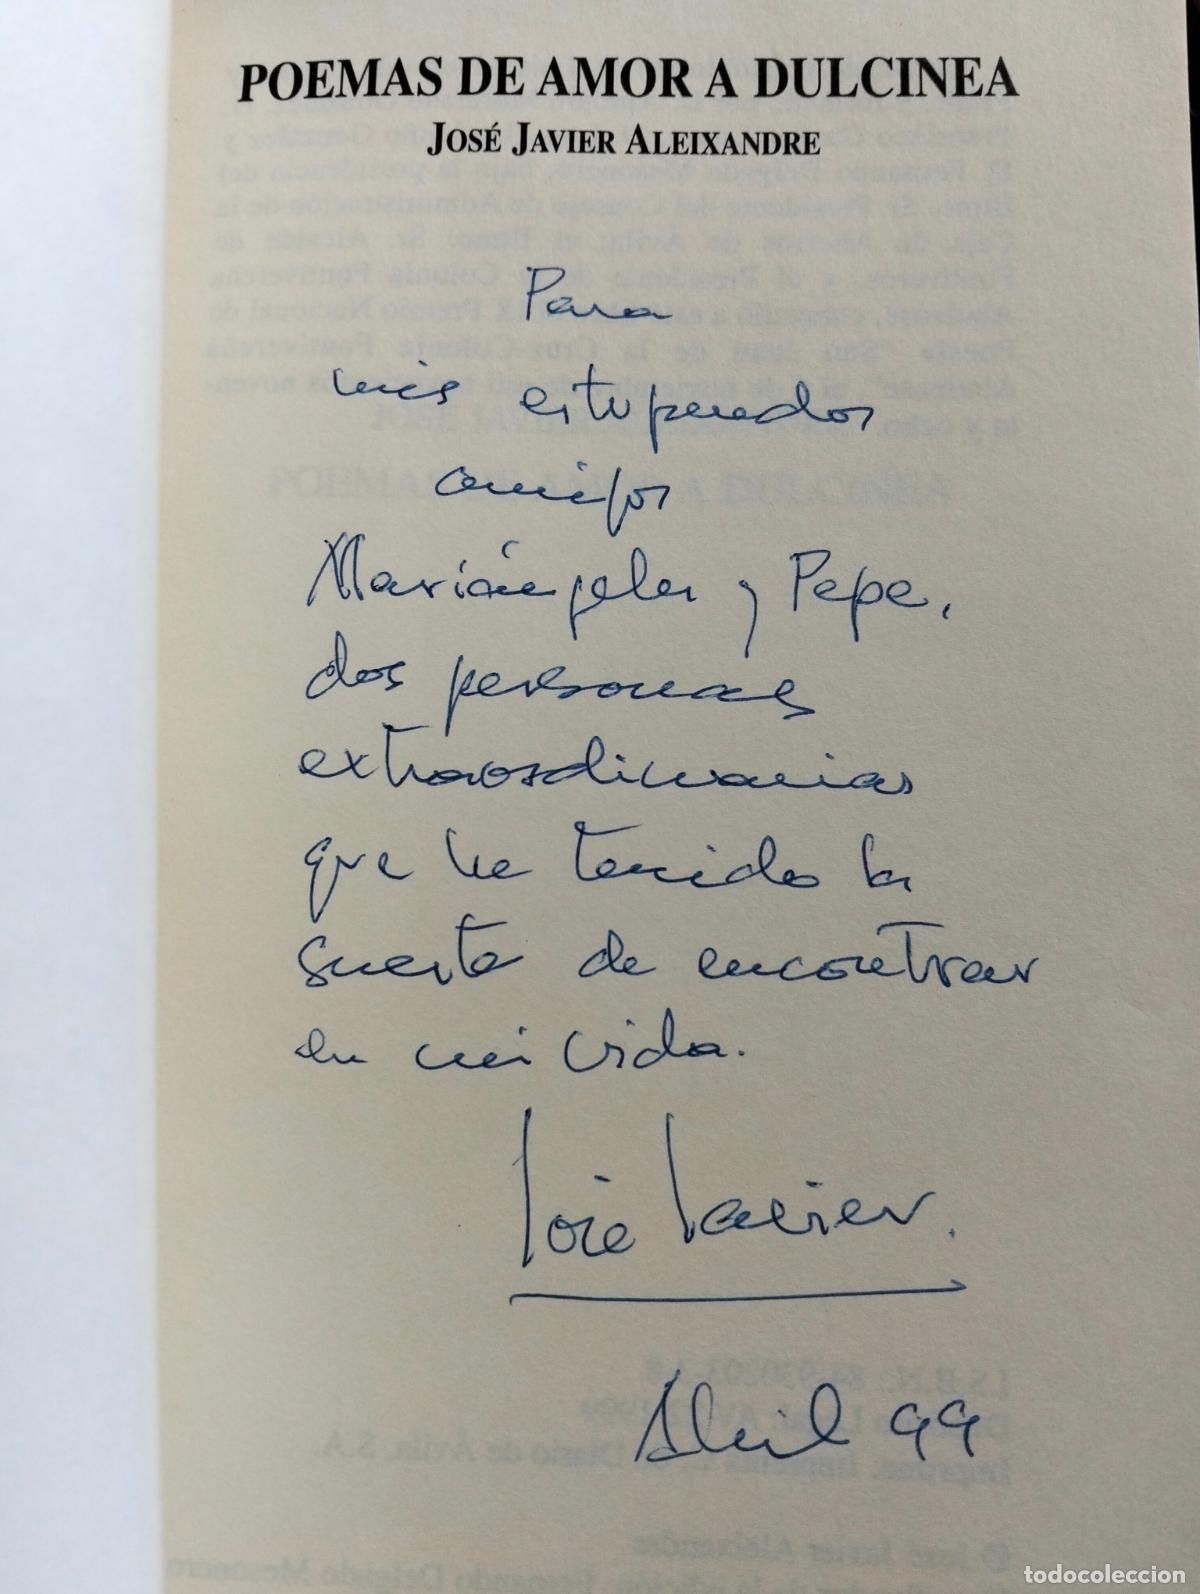 POEMAS DE AMOR A DULCINEA
JOSÉ JAVIER ALEIXANDRE
Para
mis estupendos
amigos
Mariángeles y Pepe,
dos personas
extraordinarias
que he tenido la
suerte de encontrar
en mi vida.
José Javier.
Abril 99
todocoleccion